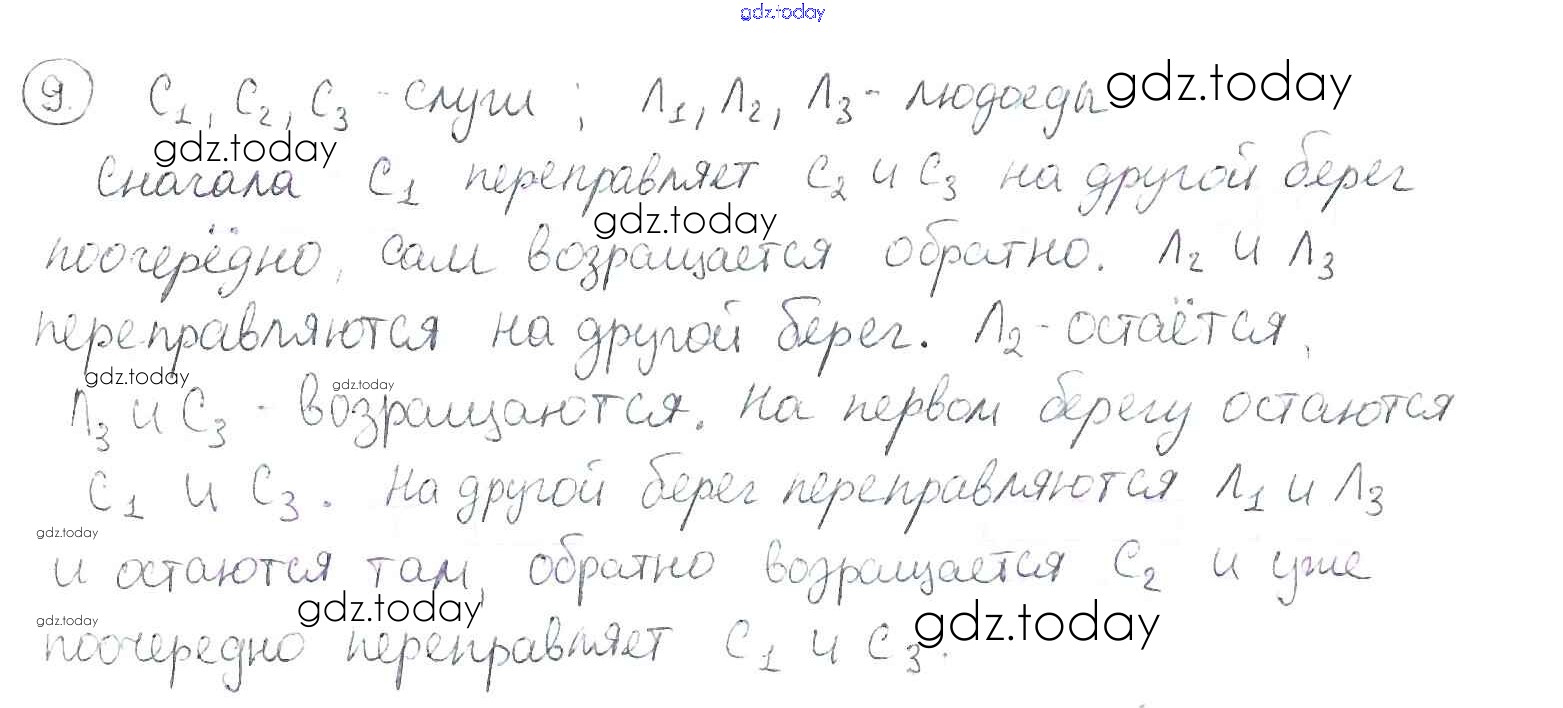 gdz.today
9. С1, С2, С3 - слуги ; Л1, Л2, Л3 - людоеды gdz.today
gdz.today
Сначала С1 переправляет С2 и С3 на другой берег
gdz.today
поочерёдно, сам возращается обратно. Л2 и Л3
переправляются на другой берег. Л2 - остаётся,
gdz.today gdz.today
Л3 и С3 - возращаются. На первом берегу остаются
С1 и С3. На другой берег переправляются Л1 и Л3
gdz.today
и остаются там, обратно возращается С2 и уже
gdz.today gdz.today gdz.today
поочередно переправляет С1 и С3.